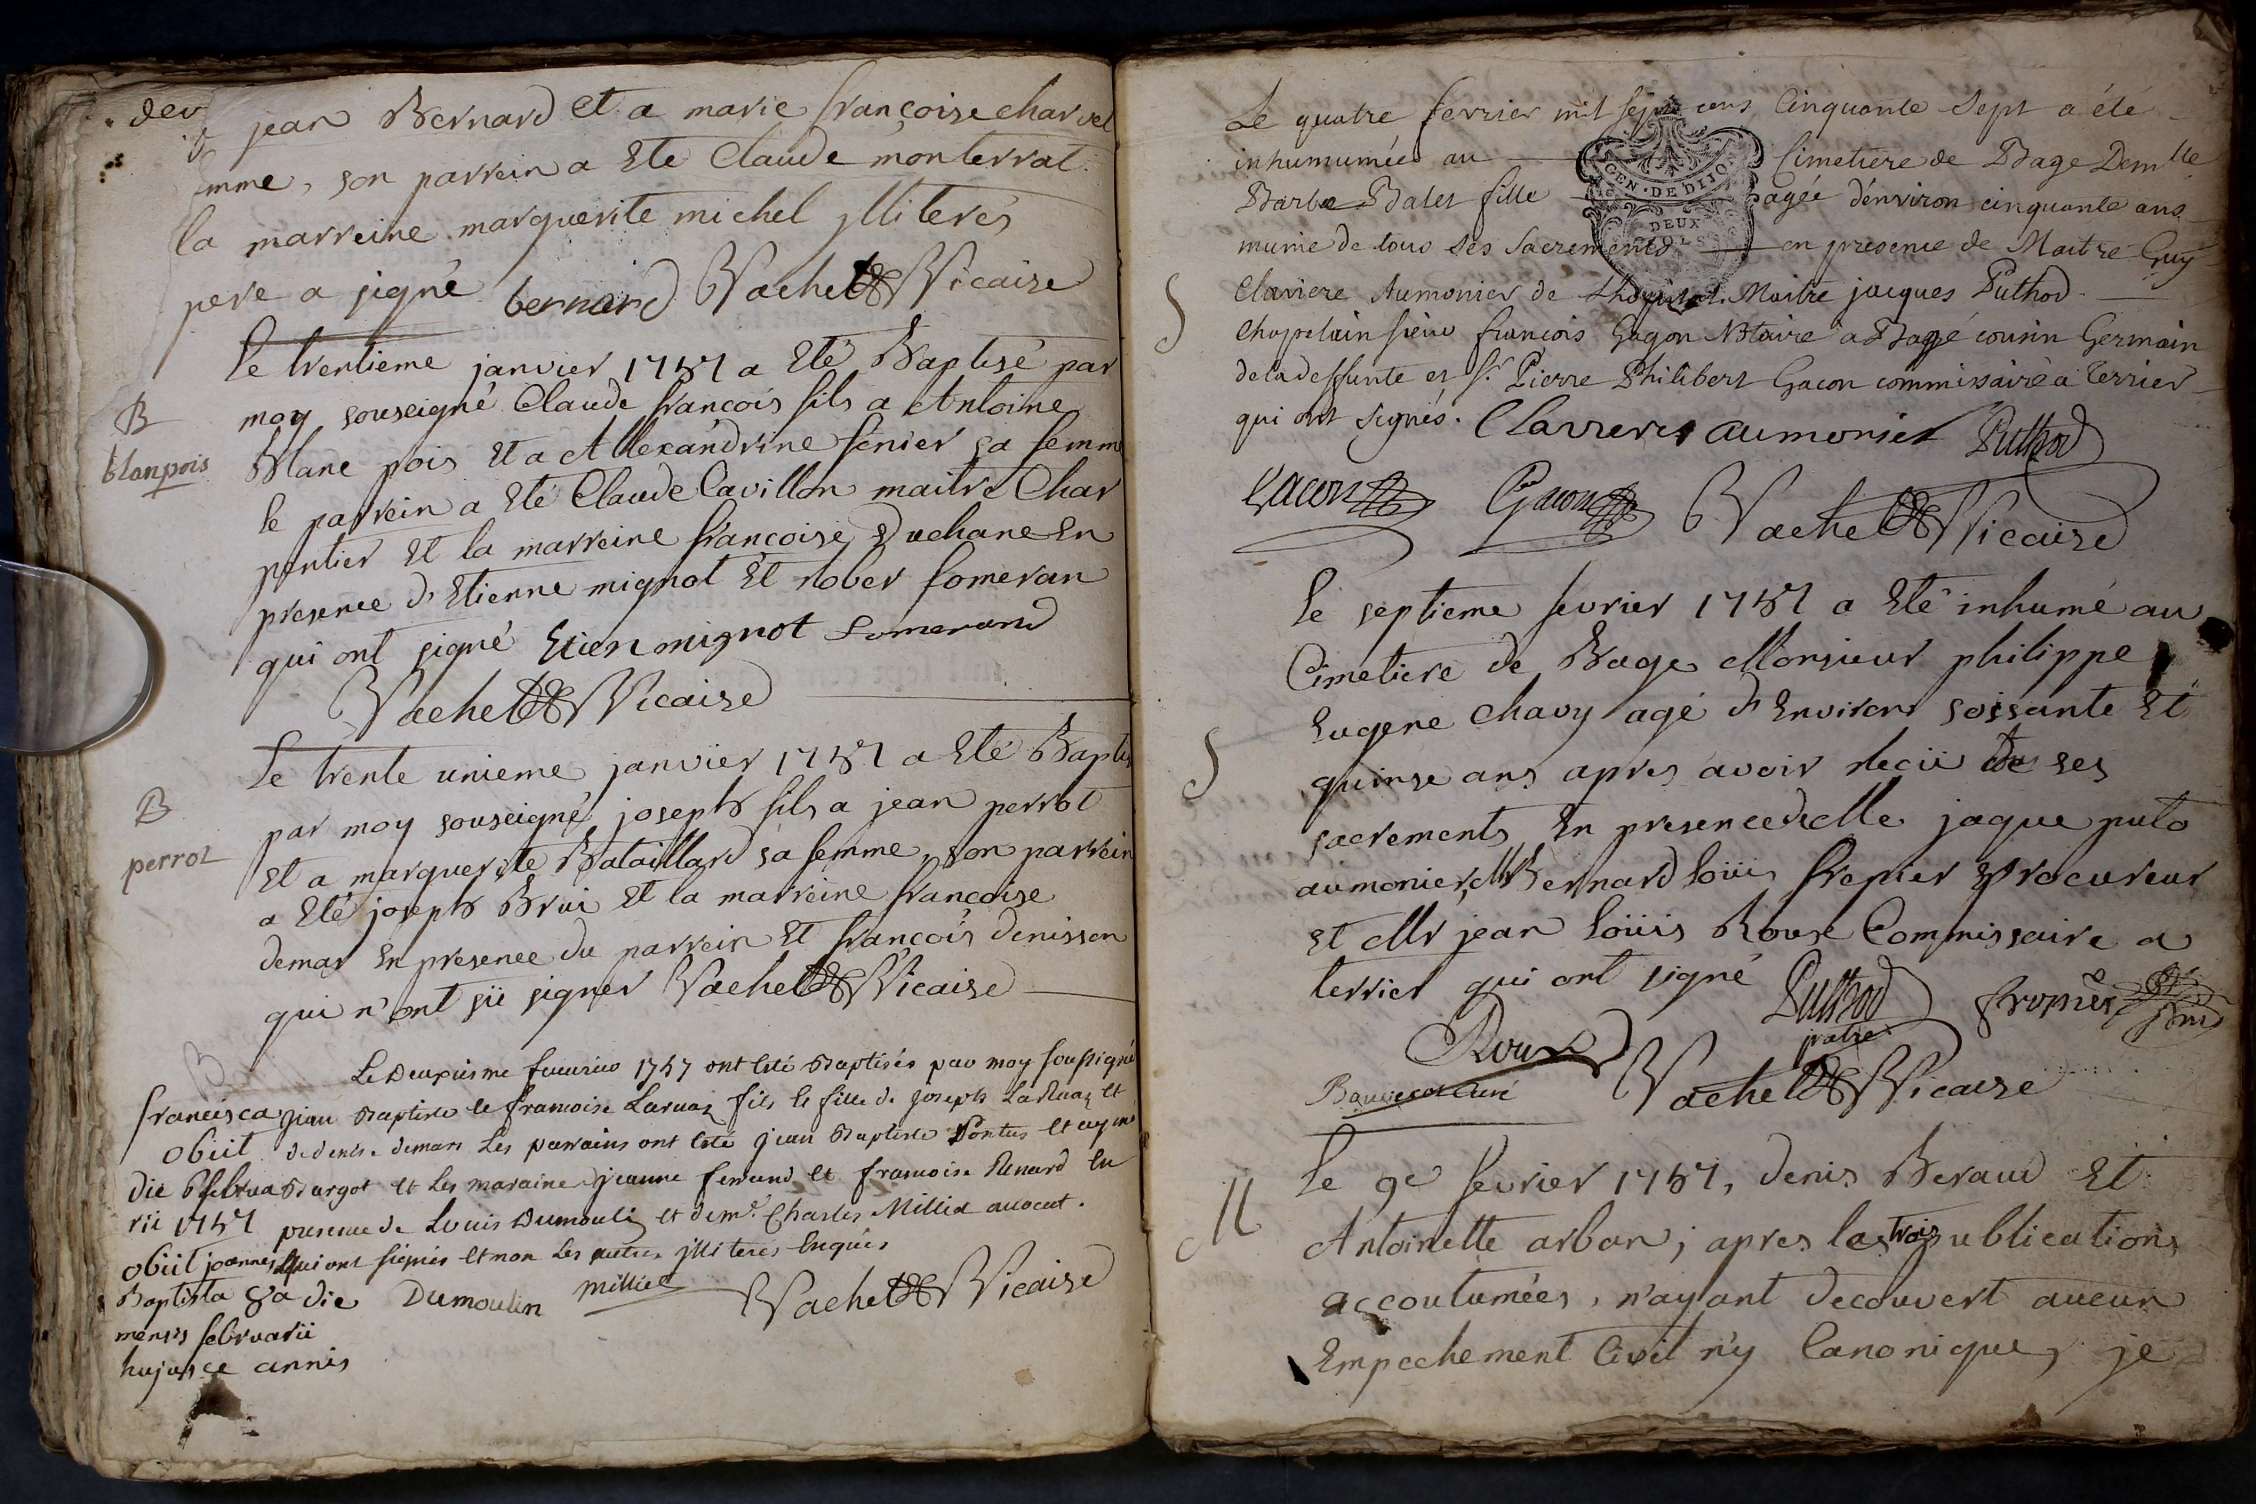 jean Bernard et a marie françoise charvet
femme, son parrein a Eté Claude monterrat
la marreine marguerite michel jlliterés
pere a signé bernard Vachet Vicaire
B
blanpois
Le trentieme janvier 1757 a Eté Baptisé par
moy souseigné Claude françois fils a Antoine
Blanc pois et a Allexandrine fenier sa femme
le parrein a Eté Claude Cavillon maitre Char
pentier Et la marreine françoise Duchane En
presence d'Etienne mignot Et rober someran
qui ont signé Etien mignot Somerand
Vachet Vicaire
B
perrot
Le trente unieme janvier 1757 a Eté Baptis
par moy souseigné joseph fils a jean perrot
Et a marguerite Bataillard sa femme, son parrein
a Eté joseph Brui Et la marreine françoise
demar En presence du parrein Et françois denisson
qui n'ont sü signer Vachet Vicaire
B
Le Deuxiesme feuurier 1757 ont Eté Baptisés par moy soussigné
jean Baptiste et françoise Laruaz fils et fille de joseph LaRuaz et
de denise demars Les parrains ont Eté jean Baptiste Pontus et
Burgot et Les maraine jeanne ferrand et françoise Renard En
presence de Louis Dumoulin et de mr. Charles Millia auocat.
qui ont signés et non Les autres jlliterés Enquis
Dumoulin millia Vachet Vicaire
francisca
obiit
die 6 februa
rii 1757
obiit joannes
Baptista 8a die
mensis februarii
hujusce annis
Le quatre fevrier mil sept cens Cinquante Sept a été
inhumumée au Cimetiere de Bage Demlle
Barbe Balet fille agée d'environ cinquante ans
munie de tous ses Sacrements en presence de Maitre Guy
Claviere Aumonier de Lhopital. Maitre jacques Puthod
Chapelain sieur françois Gacon Notaire a Bagé cousin Germain
de la deffunte et Sr. Pierre Philibert Gacon commissaire a Terrier
qui ont signés. Clavieres aumonier Puthod
Gacon Gacon Vachet Vicaire
GEN. DE DIJON
DEUX
SOLS
S
Le septieme fevrier 1757 a Eté inhumé au
Cimetiere de Bage Monsieur philippe
Eugene Chavy agé d'Environ soissante Et
quinse ans apres avoir recü ses
sacrements En presence de Mr jaque puto
aumonier, Mr Bernard loüis fropier procureur
et Mr jean loüis Rous Commissaire a
terrier qui ont signé Puthod
pretre
fropier
Roux
Vachet Vicaire
S
M
Le 9e fevrier 1757, denis Beraud Et
Antoinette arban; apres les trois publications
accoutumées, n'ayant decouvert aucun
Empechement Civil n'y Canonique, je